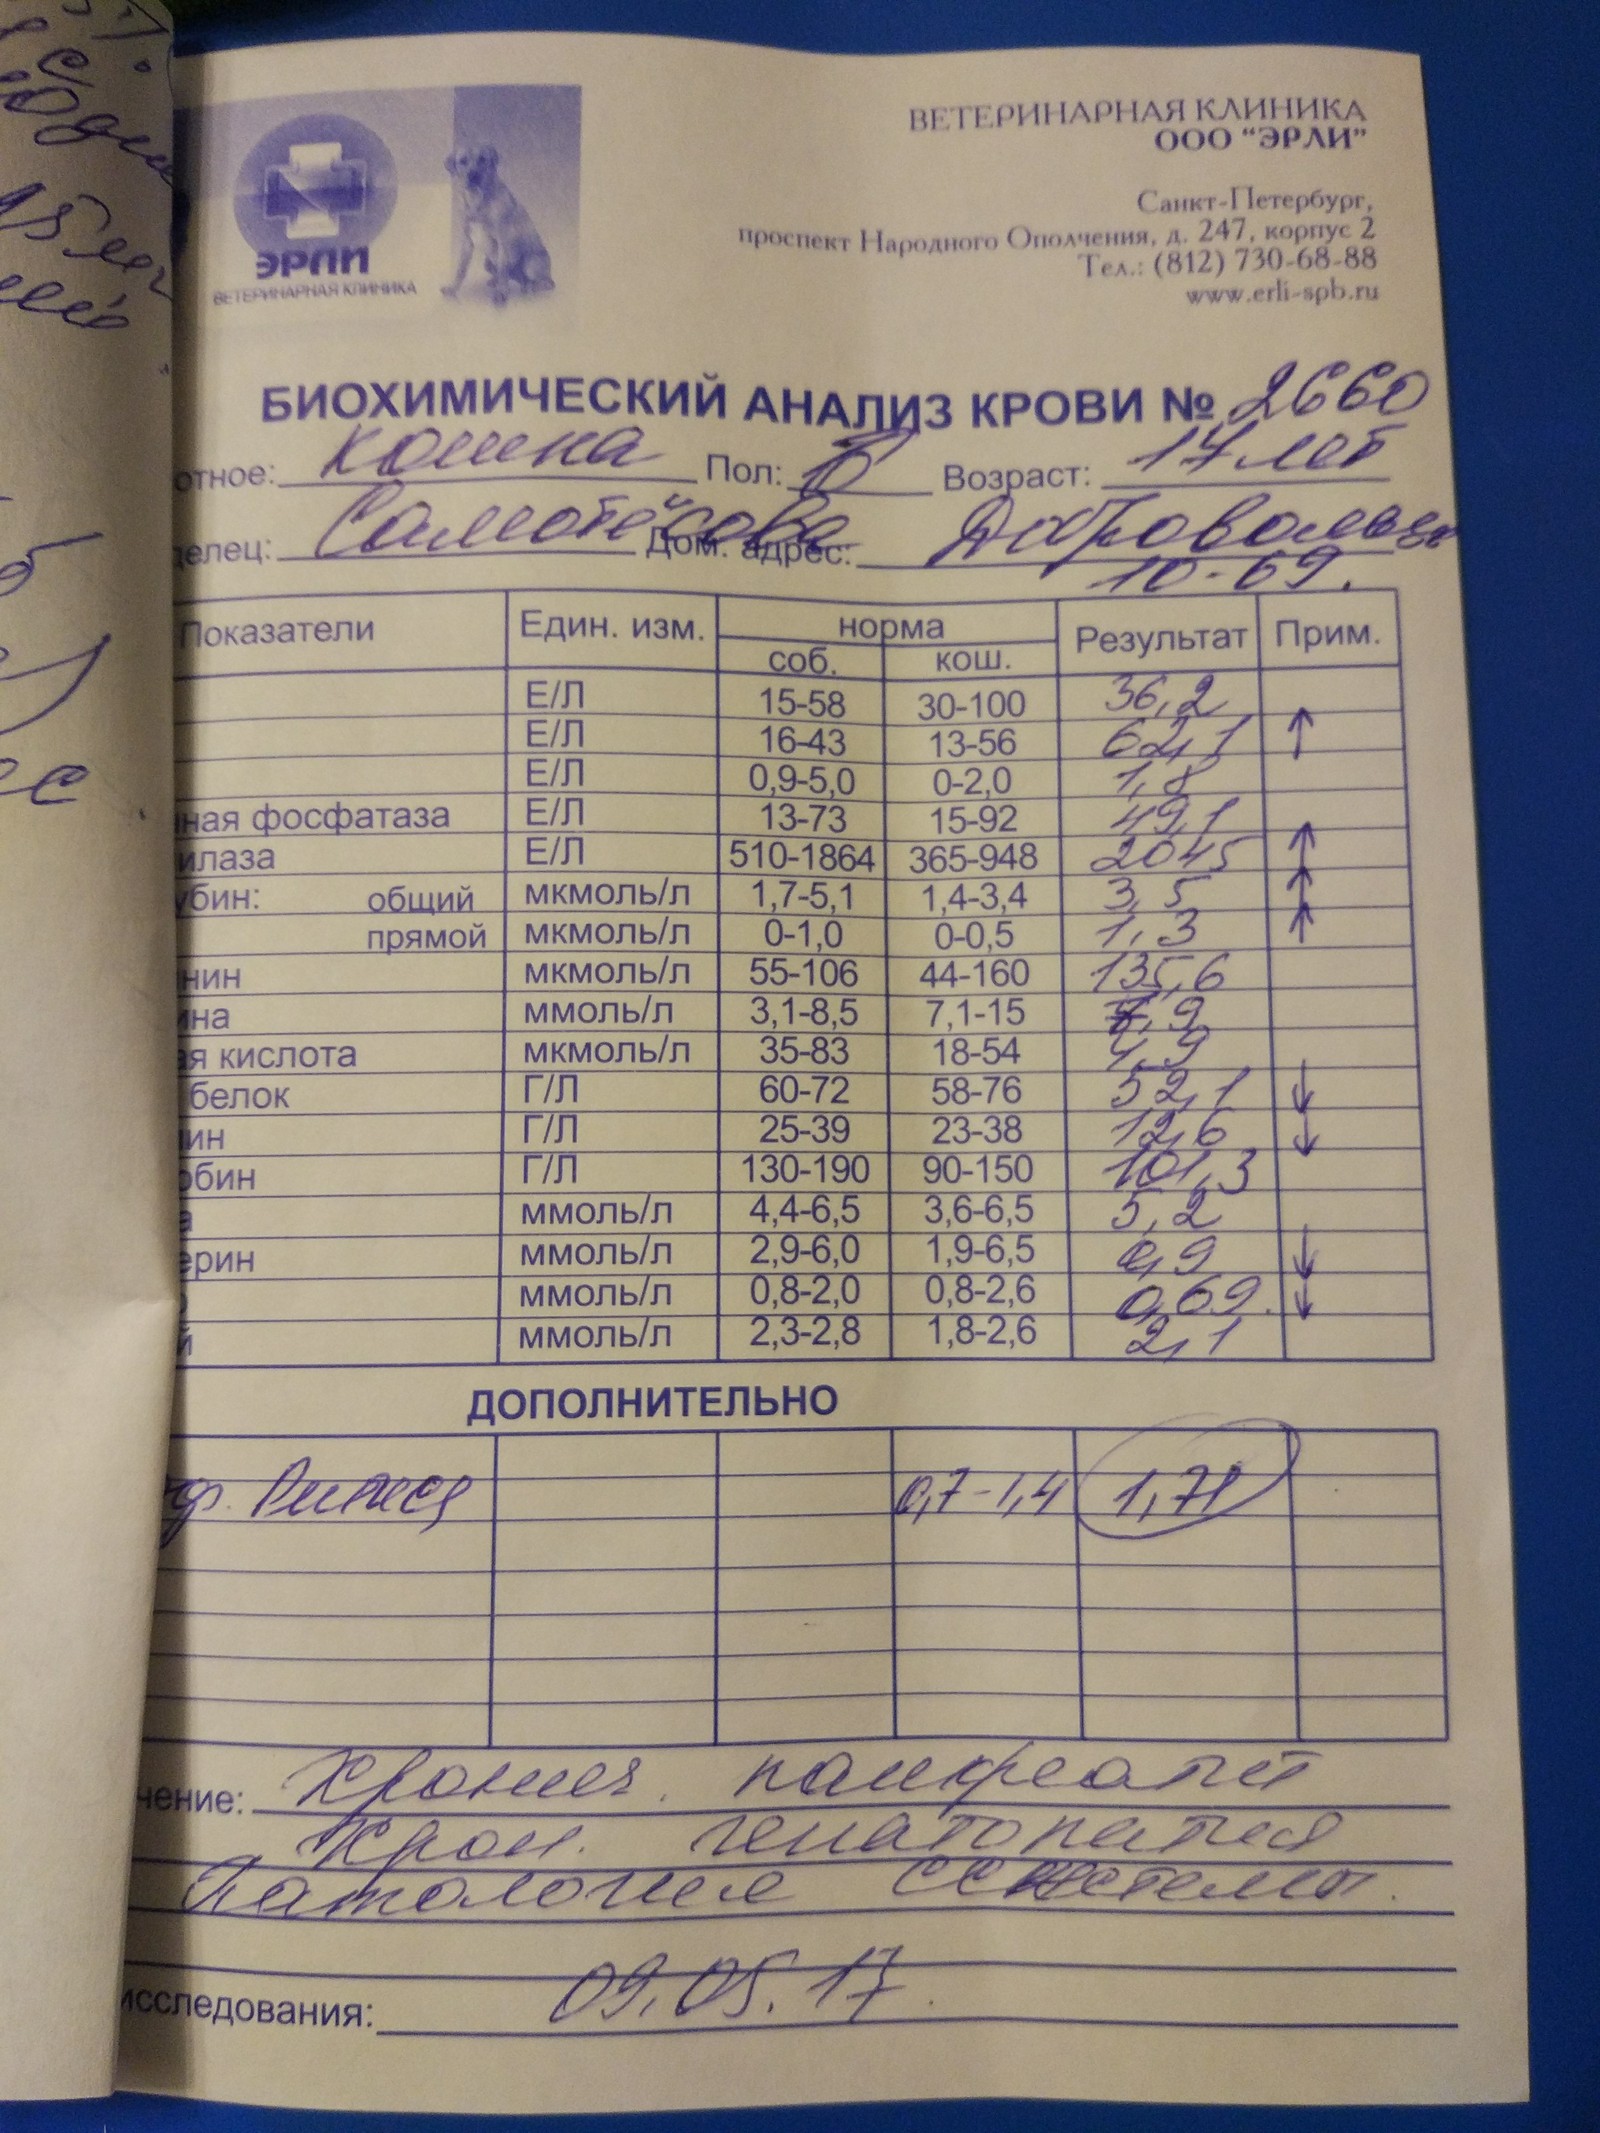 ВЕТЕРИНАРНАЯ КЛИНИКА
ООО "ЭРЛИ"
Санкт-Петербург,
проспект Народного Ополчения, д. 247, корпус 2
Тел.: (812) 730-68-88
www.erli-spb.ru
ЭРЛИ
ВЕТЕРИНАРНАЯ КЛИНИКА
БИОХИМИЧЕСКИЙ АНАЛИЗ КРОВИ № 2660
отное: кошка Пол: Возраст: 17 лет
делец: Самотёсова Дом. адрес:
10-69.
Показатели Един. изм. норма Результат Прим.
соб. кош.
Е/Л 15-58 30-100 36,2
Е/Л 16-43 13-56 62,1 ↑
Е/Л 0,9-5,0 0-2,0 1,8
ная фосфатаза Е/Л 13-73 15-92 49,1
илаза Е/Л 510-1864 365-948 2045 ↑
убин: общий мкмоль/л 1,7-5,1 1,4-3,4 3,5 ↑
прямой мкмоль/л 0-1,0 0-0,5 1,3 ↑
нин мкмоль/л 55-106 44-160 135,6
ина ммоль/л 3,1-8,5 7,1-15
ая кислота мкмоль/л 35-83 18-54 4,9
белок Г/Л 60-72 58-76 52,1 ↓
ин Г/Л 25-39 23-38 12,6 ↓
обин Г/Л 130-190 90-150 101,3
а ммоль/л 4,4-6,5 3,6-6,5 5,2
ерин ммоль/л 2,9-6,0 1,9-6,5 0,9 ↓
ммоль/л 0,8-2,0 0,8-2,6 0,69. ↓
й ммоль/л 2,3-2,8 1,8-2,6 2,1
ДОПОЛНИТЕЛЬНО
эф. Ритиса 0,7-1,4 1,71
чение: Хронич. панкреатит
Хрон. гепатопатия
Патология СС системы.
исследования: 09.05.17